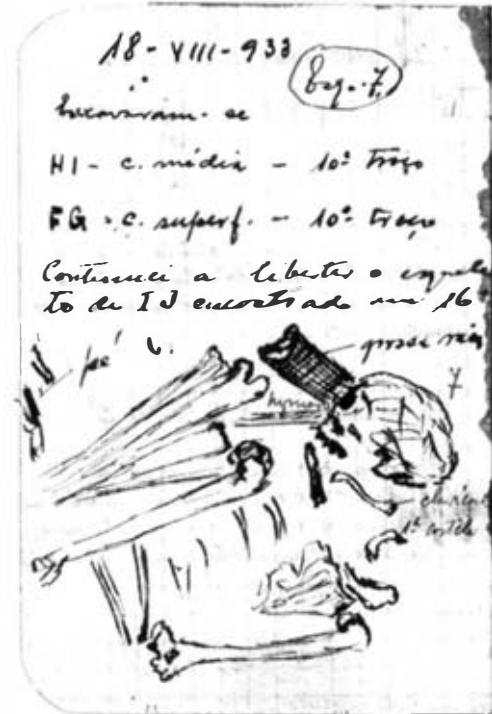 18-VIII-933
Esq. 7
Escavaram-se
HI - c. média - 10º troço
FG - c. superf. - 10º troço
Continuei a libertar o esquele
to de IJ encontrado em 16
pé
7
1ª costela